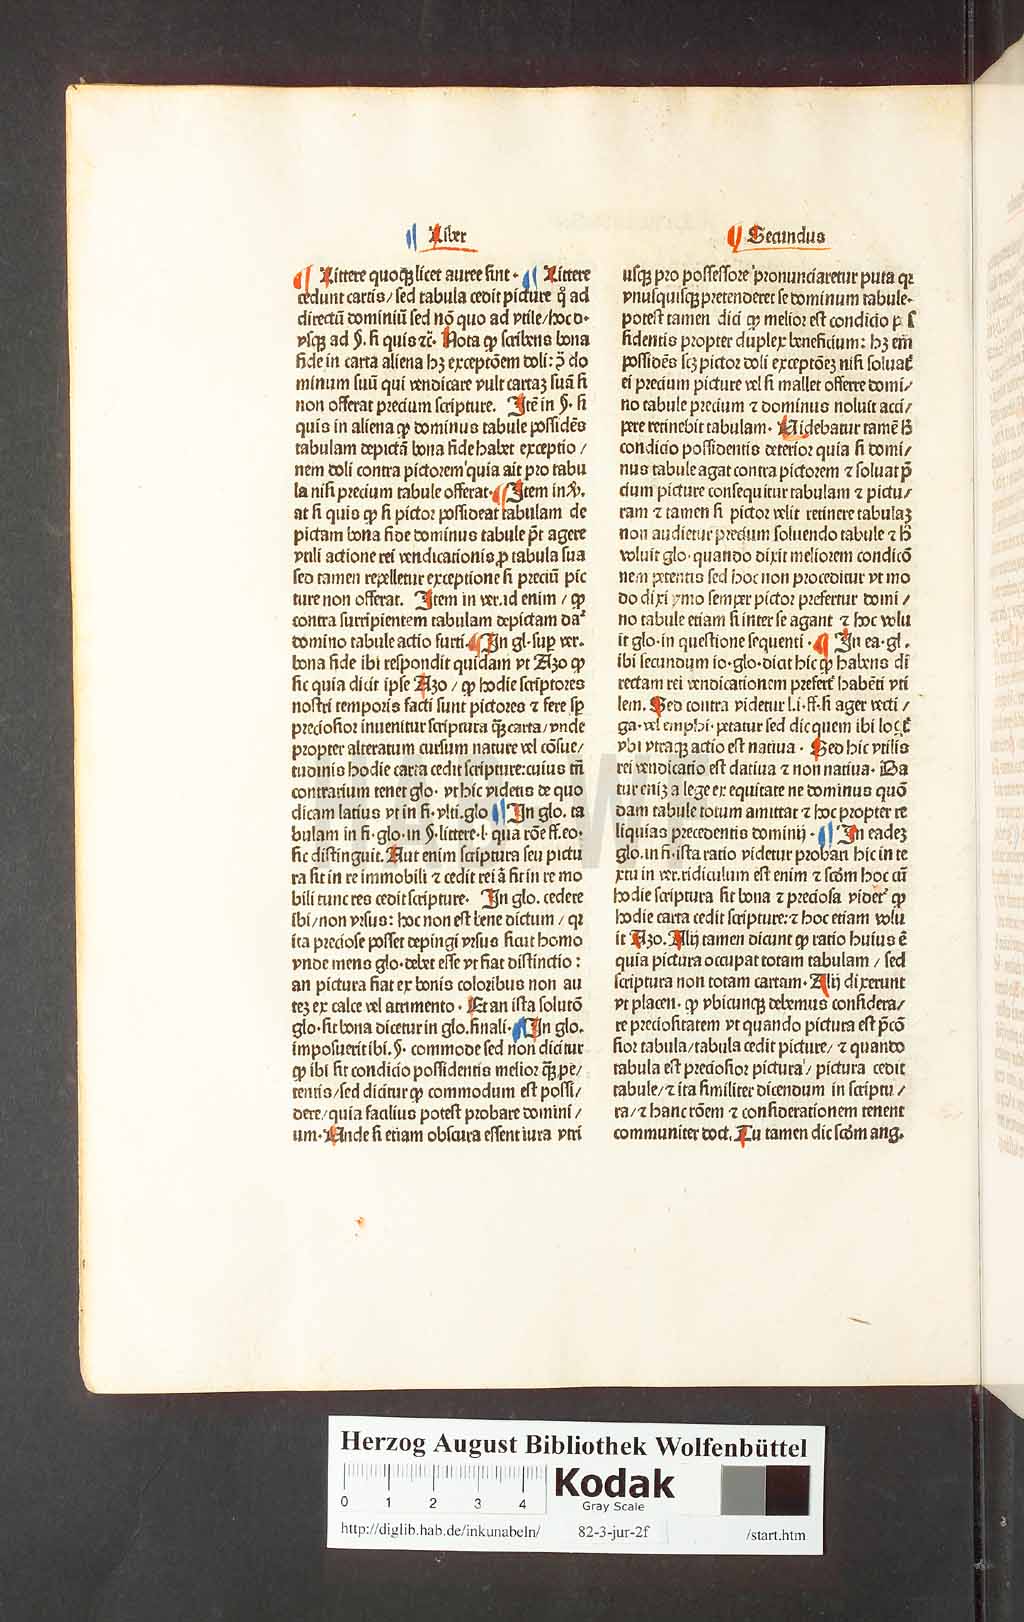 Liber
Secundus
Littere quoqȝ licet auree sint. Littere
cedunt cartis/ sed tabula cedit picture ꝙ ad
directū dominiū sed nō quo ad vtile/hoc d.
vsqȝ ad §. si quis ⁊c̄. Nota ꝙ scribens bona
fide in carta aliena hȝ exceptōem doli: ꝯ̄ do
minum suū qui vendicare vult cartaȝ suā si
non offerat precium scripture. Itē in §. si
quis in aliena ꝙ dominus tabule possidēs
tabulam depictā bona fide habet exceptio/
nem doli contra pictorem quia ait pro tabu
la nisi precium tabule offerat. Item in ℣.
at si quis ꝙ si pictor possideat tabulam de
pictam bona fide dominus tabule p̄t agere
vtili actione rei vendicationis ꝓ tabula sua
sed tamen repelletur exceptione si preciū pic
ture non offerat. Item in ver. id enim/ ꝙ
contra surripientem tabulam depictam daꝰ
domino tabule actio furti. In gl. sup ver.
bona fide ibi respondit quidam vt Azo ꝙ
sic quia dicit ipse Azo/ ꝙ hodie scriptores
nostri temporis facti sunt pictores ⁊ fere sp̄
preciosior inuenitur scriptura q̄ȝ carta/ vnde
propter alteratum cursum nature vel cōsue/
tudinis hodie carta cedit scripture: cuius tn̄
contrarium tenet glo. vt hic videtis de quo
dicam latius vt in fi. vlti. glo In glo. ta
bulam in fi. glo. in §. littere. l. qua rōe ff. eo.
sic distinguit. Aut enim scriptura seu pictu
ra fit in re immobili ⁊ cedit rei ā fit in re mo
bili tunc res cedit scripture. In glo. cedere
ibi/ non vrsus: hoc non est bene dictum/ qꝛ
ita preciose posset depingi vrsus sicut homo
vnde mens glo. debet esse vt fiat distinctio:
an pictura fiat ex bonis coloribus non au
teȝ ex calce vel atrimento. Et an ista solutō
glo. sit bona dicetur in glo. finali. In glo.
imposuerit ibi. §. commode sed non dicitur
ꝙ ibi sit condicio possidentis melior q̄ȝ pe/
tentis/ sed dicitur ꝙ commodum est possi/
dere/ quia facilius potest probare domini/
um. Unde si etiam obscura essent iura vtri
usqȝ pro possessore pronunciaretur puta qꝛ
vnusquisqȝ pretenderet se dominum tabule.
potest tamen dici ꝙ melior est condicio pos
sidentis propter duplex beneficium: hȝ em̄
possidēs scȝ pictor doli exceptōeȝ nisi soluat̉
ei precium picture vel si mallet offerre domi/
no tabule precium ⁊ dominus noluit acci/
pere retinebit tabulam. Uidebatur tamē ꝙ
condicio possidentis deterior quia si domi/
nus tabule agat contra pictorem ⁊ soluat p̄
cium picture consequitur tabulam ⁊ pictu/
ram ⁊ tamen si pictor velit retinere tabulaȝ
non audietur precium soluendo tabule ⁊ h̄
voluit glo. quando dixit meliorem condicō
nem petentis sed hoc non proceditur vt mo
do dixi ymo semper pictor prefertur domi/
no tabule etiam si inter se agant ⁊ hoc volu
it glo. in questione sequenti. In ea. gl.
ibi secundum io. glo. dicat hic ꝙ habens di
rectam rei vendicationem prefert̉ habēti vti
lem. Sed contra videtur l. i. ff. si ager vecti/
ga. vel emphi. petatur sed dic quem ibi loc̄
vbi vtraqȝ actio est natiua. Sed hic vtilis
rei vendicatio est datiua ⁊ non natiua. Da
tur eniȝ a lege ex equitate ne dominus quō
dam tabule totum amittat ⁊ hoc propter re
liquias precedentis dominij. In eadeȝ
glo. in fi. ista ratio videtur probari hic in te
xtu in ver. ridiculum est enim ⁊ scd̄m hoc cū
hodie scriptura sit bona ⁊ preciosa videt̉ ꝙ
hodie carta cedit scripture: ⁊ hoc etiam volu
it Azo. Alij tamen dicunt ꝙ ratio huius ē
quia pictura occupat totam tabulam/ sed
scriptura non totam cartam. Alij dixerunt
vt placen. ꝙ vbicunqȝ debemus considera/
re preciositatem vt quando pictura est p̄cō
sior tabula/ tabula cedit picture/ ⁊ quando
tabula est preciosior pictura/ pictura cedit
tabule/ ⁊ ita similiter dicendum in scriptu/
ra/ ⁊ hanc rōem ⁊ considerationem tenent
communiter doct. Tu tamen dic scd̄m ang.
Herzog August Bibliothek Wolfenbüttel
0 1 2 3 4
Kodak
Gray Scale
http://diglib.hab.de/inkunabeln/ 82-3-jur-2f /start.htm